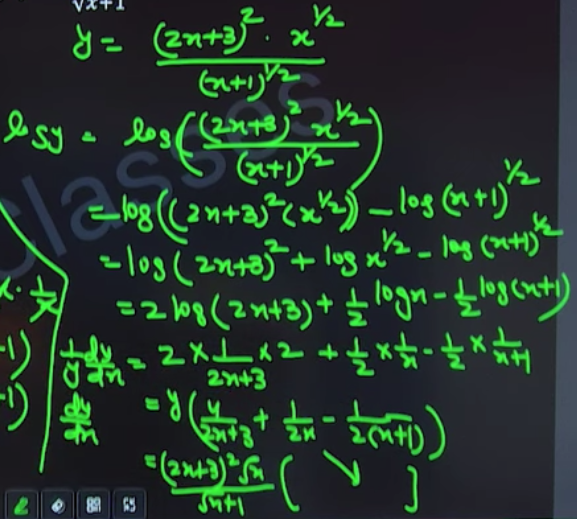 √x+1
y = (2x+3)² · x^1/2 / (x+1)^1/2
classes
log y = log((2x+3)² x^1/2 / (x+1)^1/2)
= log((2x+3)²(x^1/2)) - log(x+1)^1/2
= log(2x+3)² + log x^1/2 - log(x+1)^1/2
x · 1/x
= 2 log(2x+3) + 1/2 log x - 1/2 log(x+1)
-1)
1/y dy/dx = 2 × 1/2x+3 × 2 + 1/2 × 1/x - 1/2 × 1/x+1
-1)
dy/dx = y(4/2x+3 + 1/2x - 1/2(x+1))
= (2x+3)² √x / √x+1 ( ↘ ]